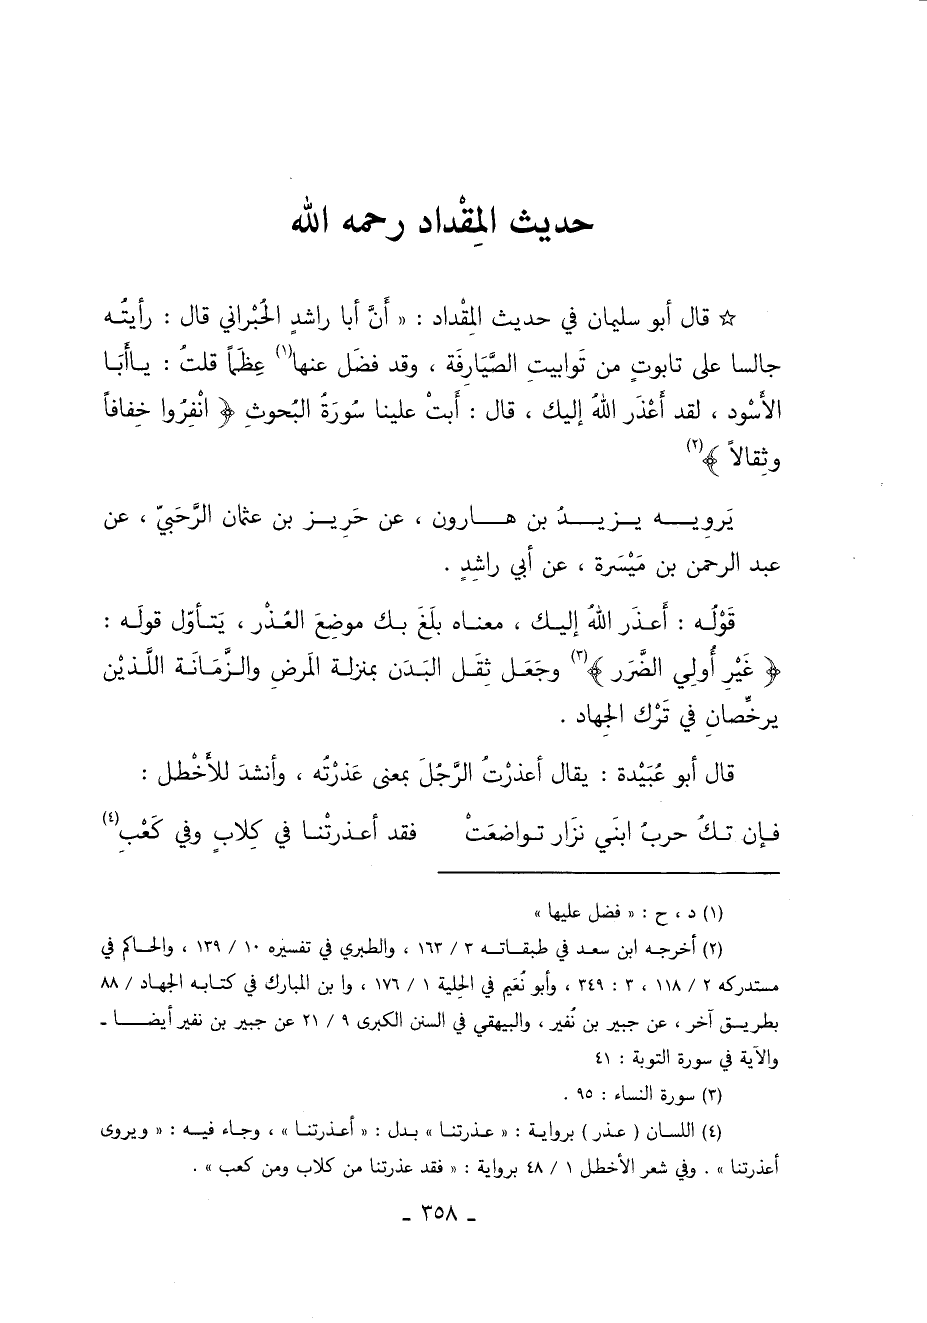 حديث المِقْداد رحمه الله
☆ قال أبو سليمان في حديث المِقْداد : « أَنَّ أبا راشدٍ الحُبْراني قال : رأيتُه
جالسا على تابوتٍ من تَوابيتِ الصَّيَارِفَة ، وقد فضَل عنها(١) عِظَماً قلتُ : ياأَبَا
الأَسْود ، لقد أَعْذَر اللهُ إليك ، قال : أَبتْ علينا سُورَةُ البُحوثِ ﴿ انْفِرُوا خِفافاً
وثِقالاً ﴾(٢)
يَرويه يزيدُ بن هارون ، عن حَرِيز بن عثمان الرَّحَبيّ ، عن
عبد الرحمن بن مَيْسَرة ، عن أبي راشدٍ .
قَوْلُه : أعذَر اللهُ إليك ، معناه بلَغَ بك موضِعَ العُذْر ، يَتأوّل قولَه :
﴿ غَيْرِ أُولي الضَّرَر ﴾(٣) وجَعَل ثِقَل البَدن بمنزلة المَرضِ والزَّمَانَة اللَّذيْن
يرخِّصانِ في تَرْك الجِهاد .
قال أبو عُبَيْدة : يقال أعذرْتُ الرَّجُلَ بمعنى عَذرْتُه ، وأنشدَ للأَخْطل :
فإن تكُ حربُ ابنَي نِزَار تواضعَتْ فقد أعذرتْنا في كِلابٍ وفي كَعْبِ(٤)
(١) د ، ح : « فضل عليها »
(٢) أخرجه ابن سعد في طبقاته ٣ / ١٦٣ ، والطبري في تفسيره ١٠ / ١٣٩ ، والحاكم في
مستدركه ٢ / ١١٨ ، ٣ : ٣٤٩ ، وأبو نُعَيم في الحِلية ١ / ١٧٦ ، وابن المبارك في كتابه الجهاد / ٨٨
بطريق آخر ، عن جبير بن نُفير ، والبيهقي في السنن الكبرى ٩ / ٢١ عن جبير بن نفير أيضا ـ
والآية في سورة التوبة : ٤١
(٣) سورة النساء : ٩٥ .
(٤) اللسان ( عذر ) برواية : « عذرتنا » بدل : « أعذرتنا » ، وجاء فيه : « ويروى
أعذرتنا » . وفي شعر الأخطل ١ / ٤٨ برواية : « فقد عذرتنا من كلاب ومن كعب » .
ـ ٣٥٨ ـ